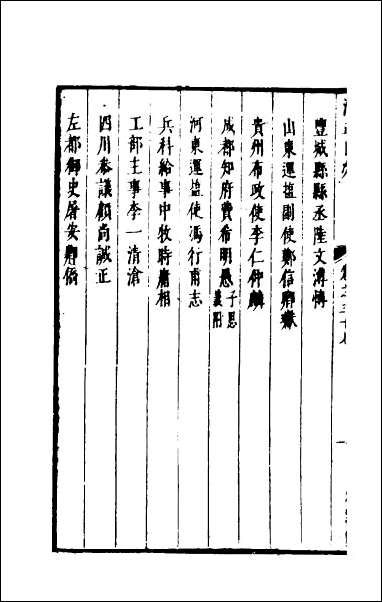 豐城縣縣丞陸文溥博
山東運鹽副使鄭信卿
貴州布政使李仁仲麟
成都知府費希明愚 子思義附
河東運鹽使馮行甫志
兵科給事中牧時庸相
工部主事李一清滄
四川參議顧尚誠正
左都御史屠安卿僑